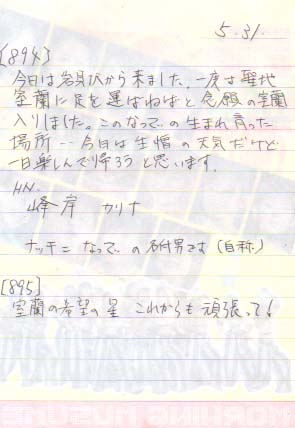 5.31.
[894]
今日は岩見沢から来ました。一度は聖地
室蘭に足を運ばねばと念願の室蘭
入りしました。このなっての生まれ育った
場所‥今日は生憎の天気だけど
一日楽しんで帰ろうと思います。
HN.
峰岸 カリナ
ナッチニ なっての 弟です(自称)
[895]
室蘭の希望の星 これからも 頑張って!
MORNING MUSUME